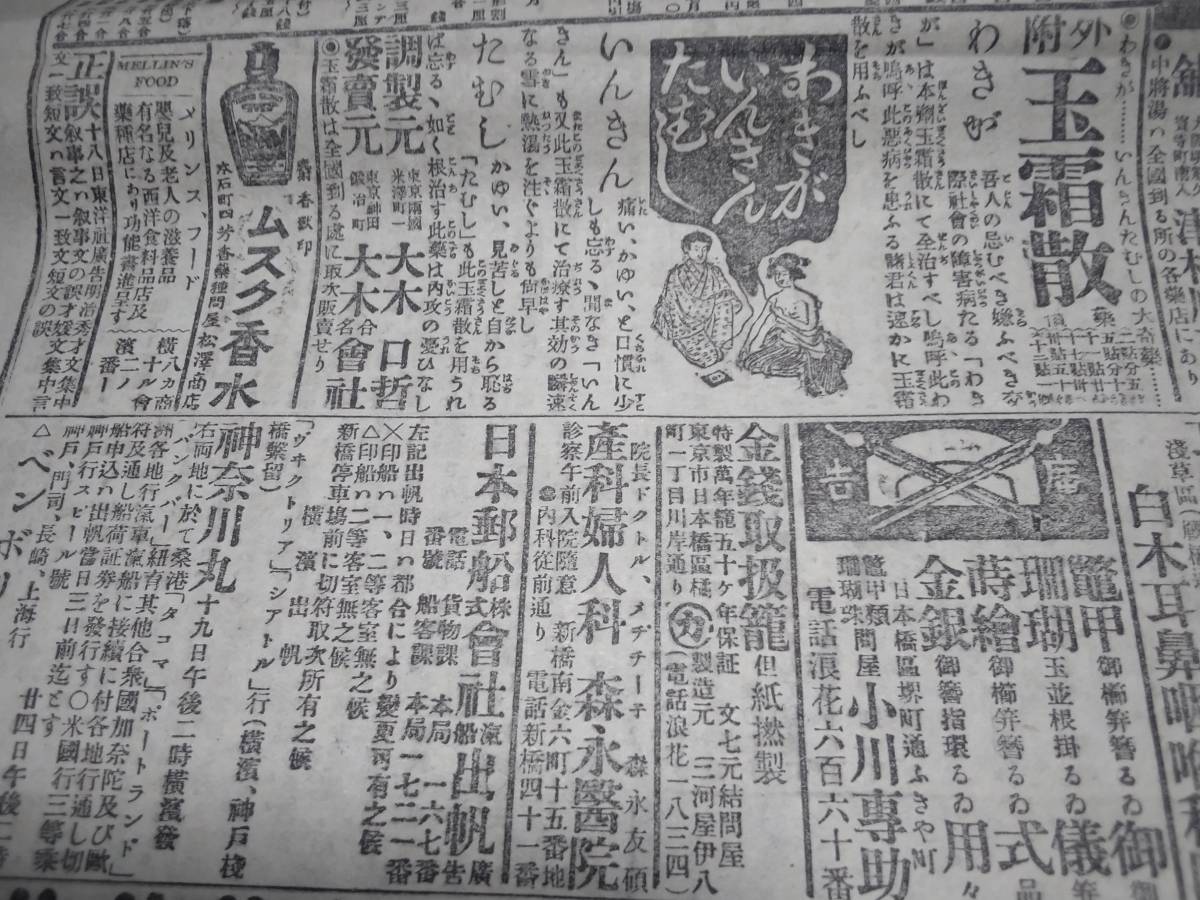 中將湯ハ全國到る所の各藥店にあり
●わきが……いんきんたむしの大奇藥……
外附
玉霜散
わきが
吾人の忌むべき嫌ふべきな
際社會の障害病たる「わき
が」は本劑玉霜散にて全治すべし嗚呼此わ
きが嗚呼此惡病を患ふる諸君は速かに玉霜
散を用ふべし
わきが
いんきん
たむし
いんきん
痛い、かゆい、と口慣に少
しも忘る、間なき「いん
きん」も又此玉霜散にて治療す其効の瞬速
なる雪に熱湯を注ぐよりも尙早し
たむし
かゆい、見苦しと自から恥る
「たむし」も此玉霜散を用うれ
ば忘る、如く根治す此藥は内攻の憂ひなし
調製元
東京兩國
米澤町一
大木口哲
發賣元
東京神田
鍛冶町
大木合名會社
●玉霜散は全國到る處に取次販賣せり
麝香獸印
ムスク香水
本石町四 芳香藥種問屋 松澤商店
MELLIN'S
FOOD
メリンス、フード
嬰兒及老人の滋養品
有名なる西洋食料品店及
藥種店にあり功能書進呈す
横濱
八十二番
カルノー
商會
正誤
十八日東洋社廣告明治秀才文集中
叙事之ハ叙事文の誤才媛文集中言
文一致短文ハ言文一致文短文の誤
浅草區
白木耳鼻咽喉科
鼈甲 御櫛笄簪るゐ
珊瑚 玉並根掛るゐ
蒔繪 御櫛笄簪るゐ
金銀 御簪指環るゐ
御儀式用
日本橋區堺町通ふきや町
鼈甲類
珊瑚珠
問屋 小川專助
電話浪花六百六十番
金錢取扱籠
但紙撚製
特製萬年籠五十ケ年保証 文七元結問屋
東京市日本橋區橘
町一丁目川岸通り
カ
製造元 三河屋伊八
(電話浪花一八三四)
院長ドクトル、メヂチーチ 森永友碩
產科婦人科 森永醫院
診察午前入院隨意 新橋南金六町十五番地
●內科從前通り 電話新橋四十一番
日本郵船株式會社汽船出帆廣告
電話
番號
貨物課 本局 一六七番
船客課 本局 一七二一番
左記出帆時日ハ都合により變更可有之候
×印船ハ一、二等客室無之候
△印船ハ二等客室無之候
新橋停車塲前に切符取次所有之候
横濱出帆
「ヴヰクトリア」「シアトル」行(横濱、神戸棧
橋繫留)
神奈川丸 十九日午後二時横濱發
右両地に於て桑港「タコマ」「ポートランド」
「バンクバー」紐育其他合衆國加奈陀及び歐
洲各地行汽車、汽船に接續に付各地行通し切
符及通し船荷証券を發行す〇米國行三等乘
船申込ハ出帆當日三日前迄とす
神戸行スピール號
神戸、門司、長崎、上海行
△ベンガリ 廿四日午後